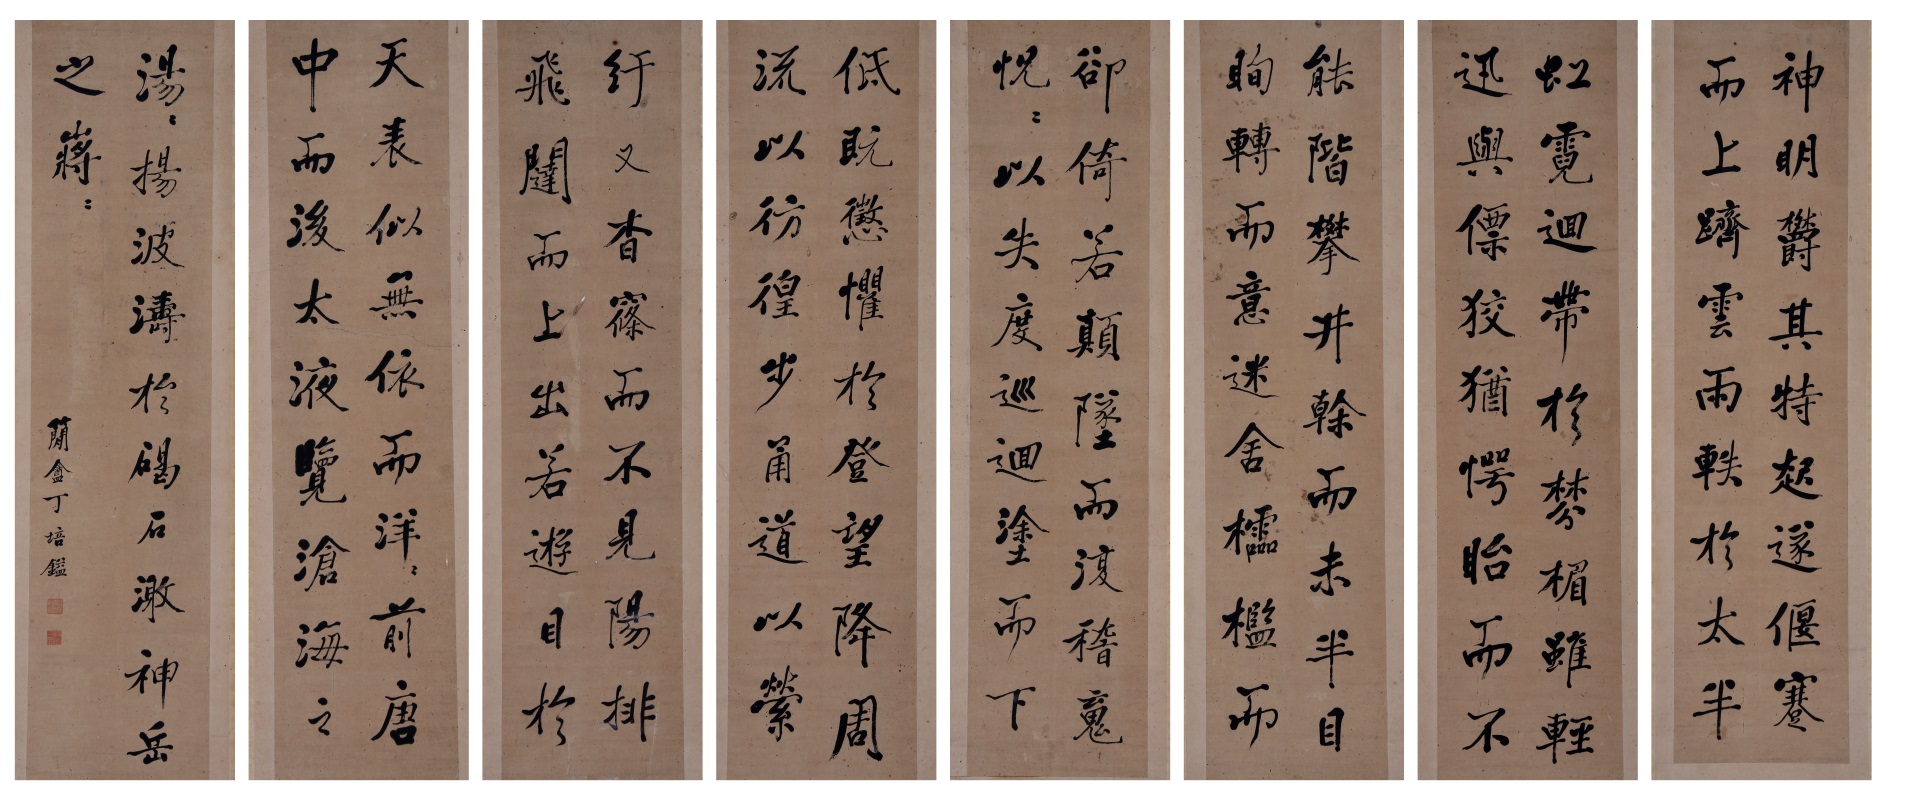 神明欝其特起遂偃蹇
而上躋雲雨軼於太半
虹霓迴帶於棼楣雖輕
迅與僄狡猶愕眙而不
能階攀井榦而未半目
眴轉而意迷舍櫺檻而
卻倚若顛墜而復稽䰟
怳〻以失度巡迴塗而下
低既懲懼於登望降周
流以彷徨步甬道以縈
紆又杳窱而不見陽排
飛闥而上出若遊目於
天表似無依而洋〻前唐
中而後太液覽滄海之
湯〻揚波濤於碣石激神岳
之蔣〻
盦丁培鑑